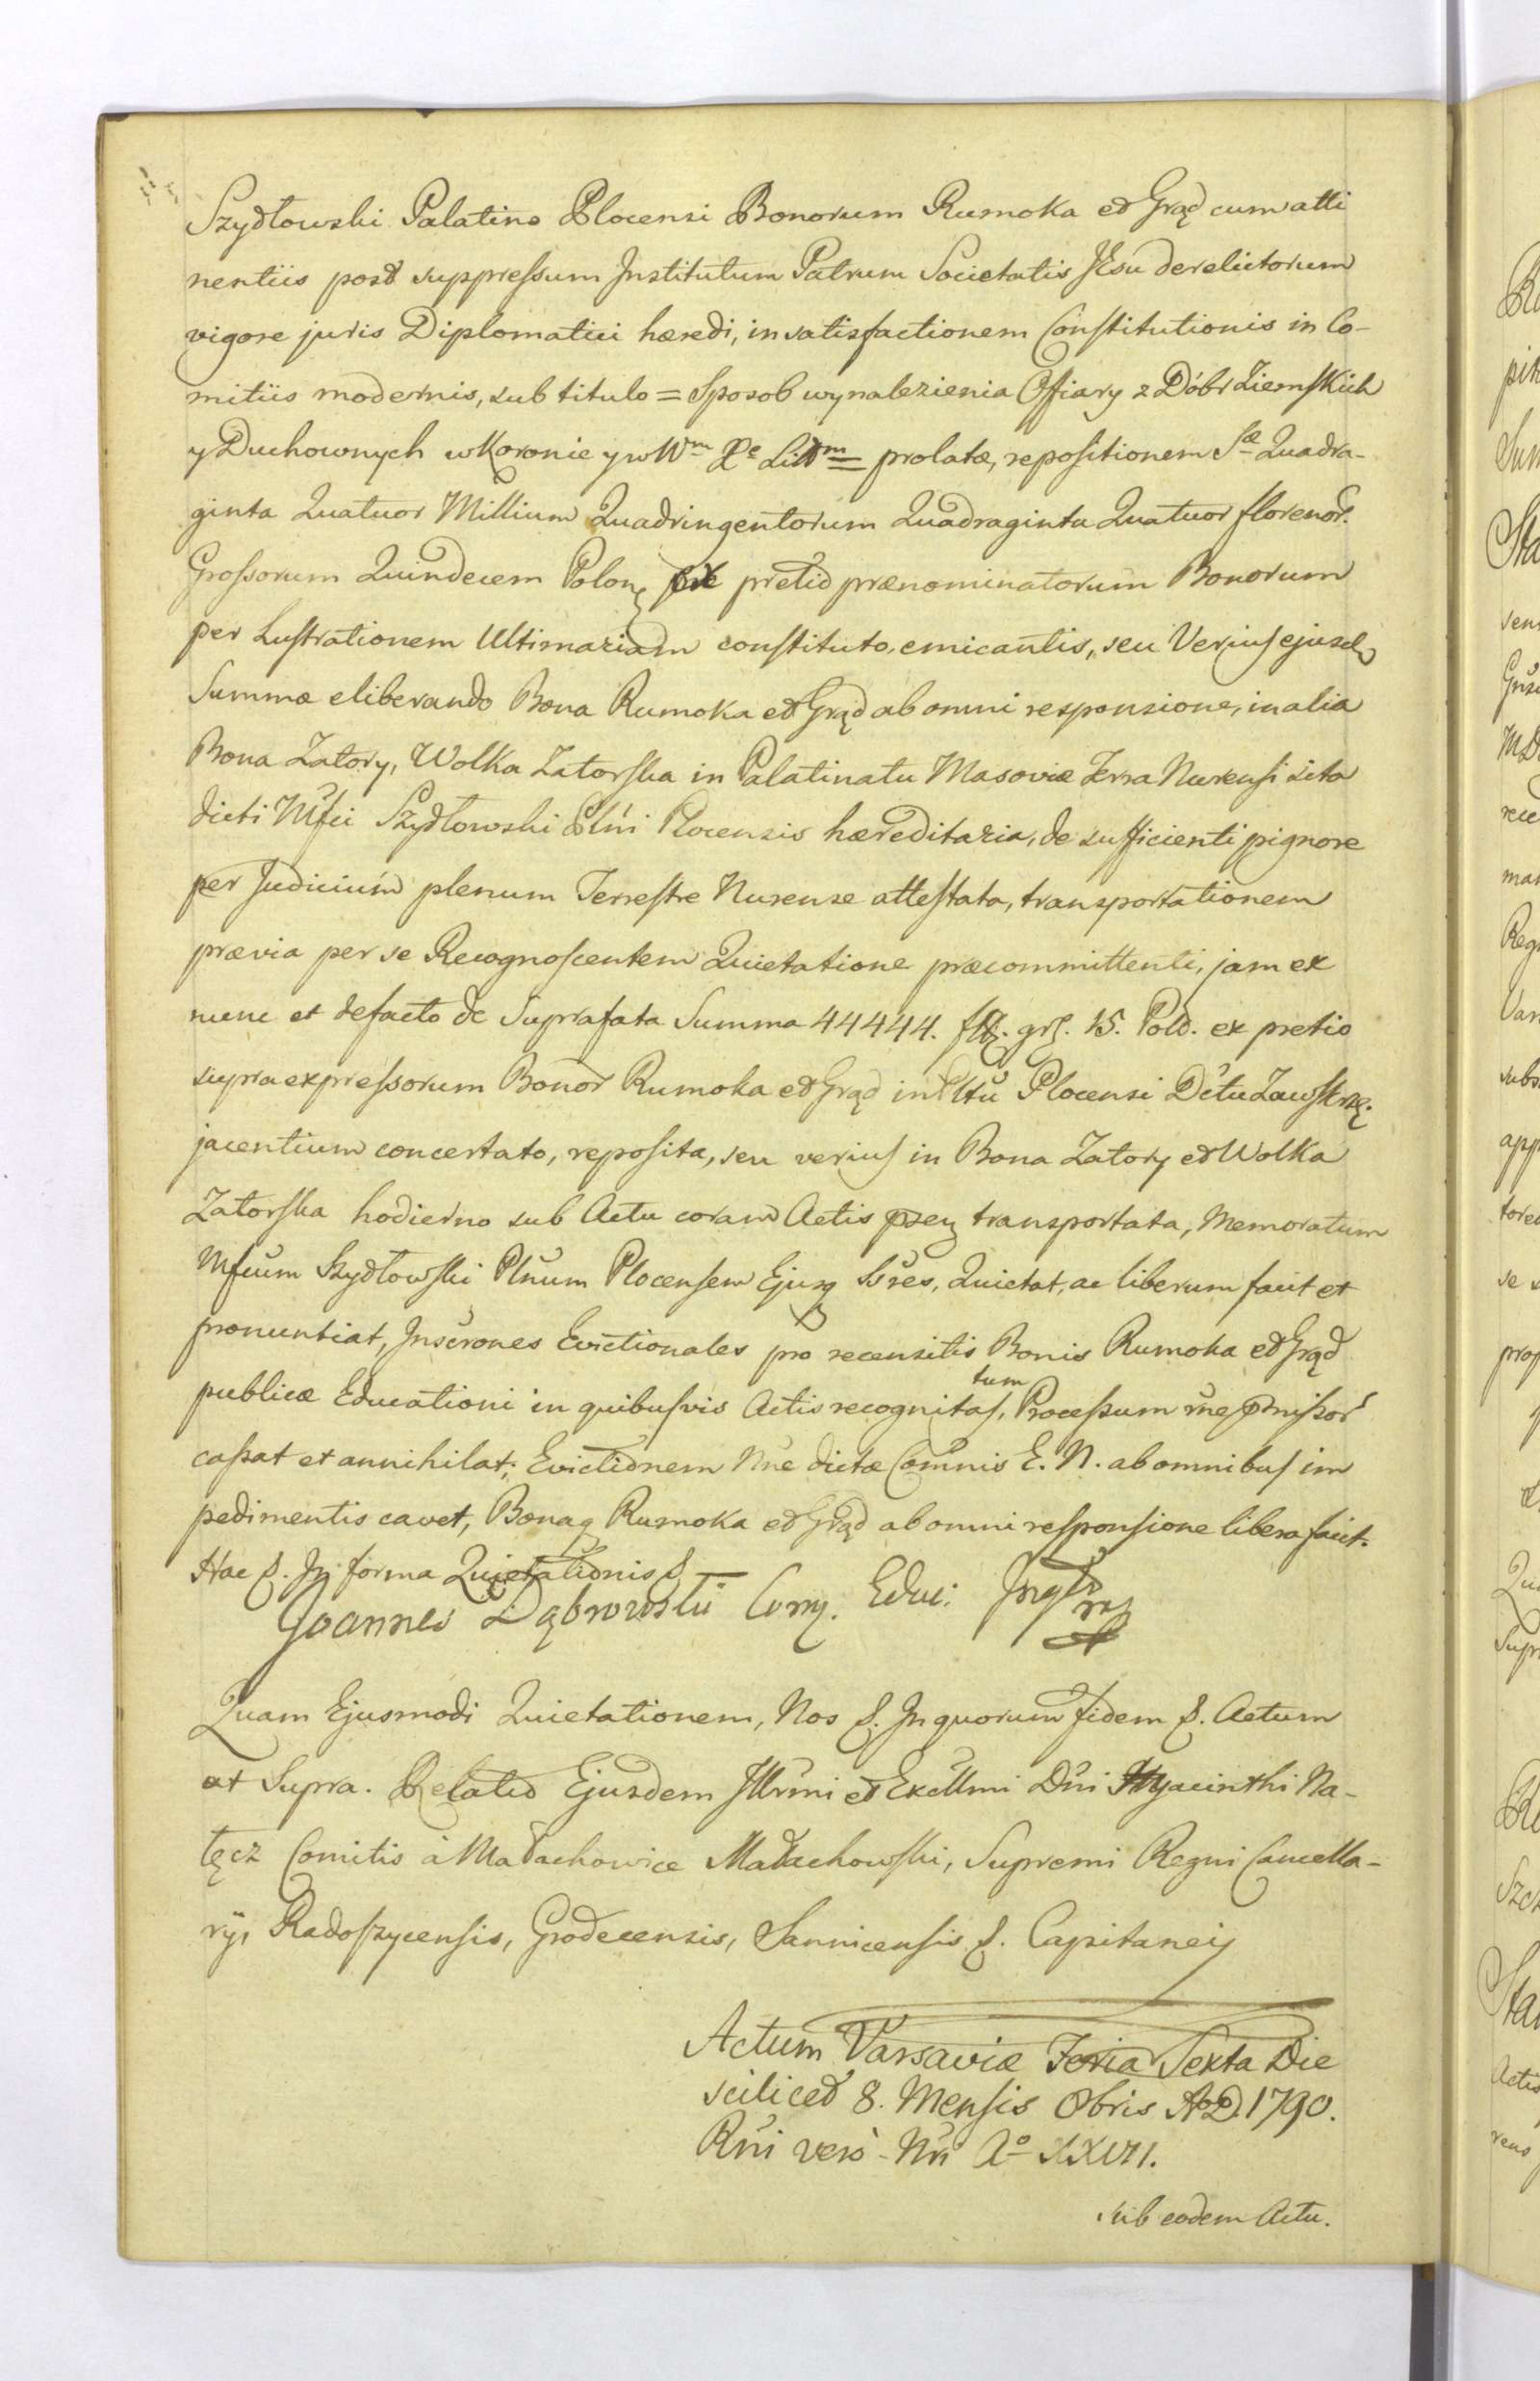 Szydłowski Palatino Plocensi Bonorum Rumoka et Grąd cum atti
nentiis post suppressum Institutum Patrum Societatis JEsu derelictorum
vigore juris Diplomatici hæredi, in satisfactionem Constitutionis in Co-
mitiis modernis, sub titulo = Sposob wynalezienia Offiary z Dóbr Ziemskich
y Duchownych w Koronie y w Wm Xe Littm = prolatæ, repositionem Sæ Quadra-
ginta Quatuor Millium Quadringentorum Quadraginta Quatuor florenor.
Grossorum Quindecem Polon, pretio prænominatorum Bonorum
per Lustrationem Ultimariam constituto, emicantis, seu Verius ejusd
Summæ eliberando Bona Rumoka et Grąd ab omni responsione, in alia
Bona Zatory, Wolka Zatorska in Palatinatu Masoviæ Terra Nurensi sita
dicti Mfci Szydłowski Plni Plocensis hæreditaria, de sufficienti pignore
per Judicium plenum Terrestre Nurense attestata, transportationem
prævia per se Recognoscentem Quietatione præcommittenti, jam ex
nunc et defacto de Suprafata Summa 44444. fl. grs. 15. Pold. ex pretio
supraexpressorum Bonor Rumoka et Grąd in Pltu Plocensi Dctu Zawskrz.
jacentium concertato, reposita, seu verius in Bona Zatory et Wolka
Zatorska hodierno sub Actu coram Actis pntz transportata, Memoratum
Mfcum Szydłowski Plnum Plocensem Ejusq Ssres, Quietat, ac liberum facit et
pronuntiat, Inscrones Evictionales pro recensitis Bonis Rumoka et Grąd
publicæ Educationi in quibusvis Actis recognitas, tum Processum rne pmissor
cassat et annihilat; Evictionem Nne dictæ Comnis E. N. ab omnibus im
pedimentis cavet, Bonaq Rumoka et Grąd ab omni responsione libera facit.
Hac &. In forma Quietationis &
Joannes Dąbrowski Comy. Educ:
Quam Ejusmodi Quietationem, Nos &. In quorum fidem &. Actum
ut Supra. Relatio Ejusdem Illrmi et Excllmi Dni Hyacinthi Na-
łęcz Comitis à Małachowice Małachowski, Supremi Regni Cancella-
rij, Radoszycensis, Grodecensis, Sannicensis &. Capitanei
Actum Varsaviæ Feria Sexta Die
scilicet 8. Mensis Obris AD. 1790.
Rni verò Nri Ao XXVII.
sub eodem Actu.